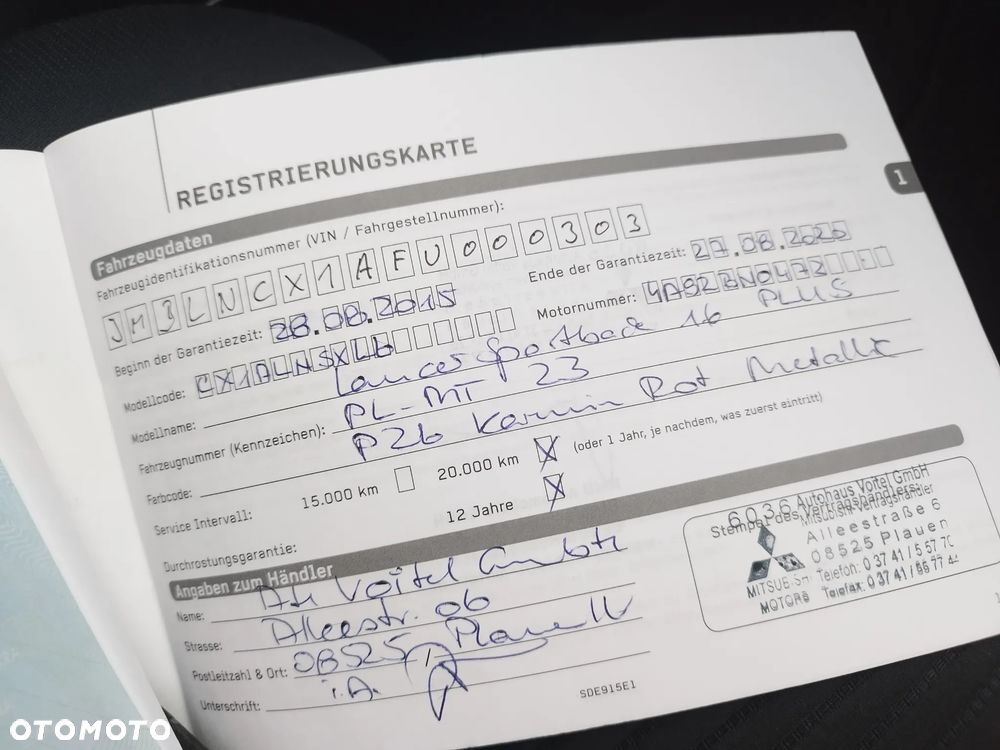 REGISTRIERUNGSKARTE
1
Fahrzeugdaten
Fahrzeugidentifikationsnummer (VIN / Fahrgestellnummer):
JMBLNCX1AFU000303
Beginn der Garantiezeit: 28.08.2015 Ende der Garantiezeit: 27.08.2020
Modellcode: CX1ALNSXL6 Motornummer: 4A92BN0472
Modellname: Lancer Sportback 16 PLUS
Fahrzeugnummer (Kennzeichen): PL-MT 23
Farbcode: P26 Karmin Rot Metallic
Service Intervall: 15.000 km 20.000 km X (oder 1 Jahr, je nachdem, was zuerst eintritt)
Durchrostungsgarantie: 12 Jahre X
Angaben zum Händler
Name: AH Voitel GmbH
Strasse: Alleestr. 06
Postleitzahl & Ort: 08525 Plauen
Unterschrift: i.A.
Stempel des Vertragshändlers:
6036 Autohaus Voitel GmbH
Mitsubishi-Vertragshändler
Alleestraße 6
08525 Plauen
Telefon: 0 37 41 / 5 57 70
Telefax: 0 37 41 /
MITSUBISHI
MOTORS
SDE915E1
OTOMOTO